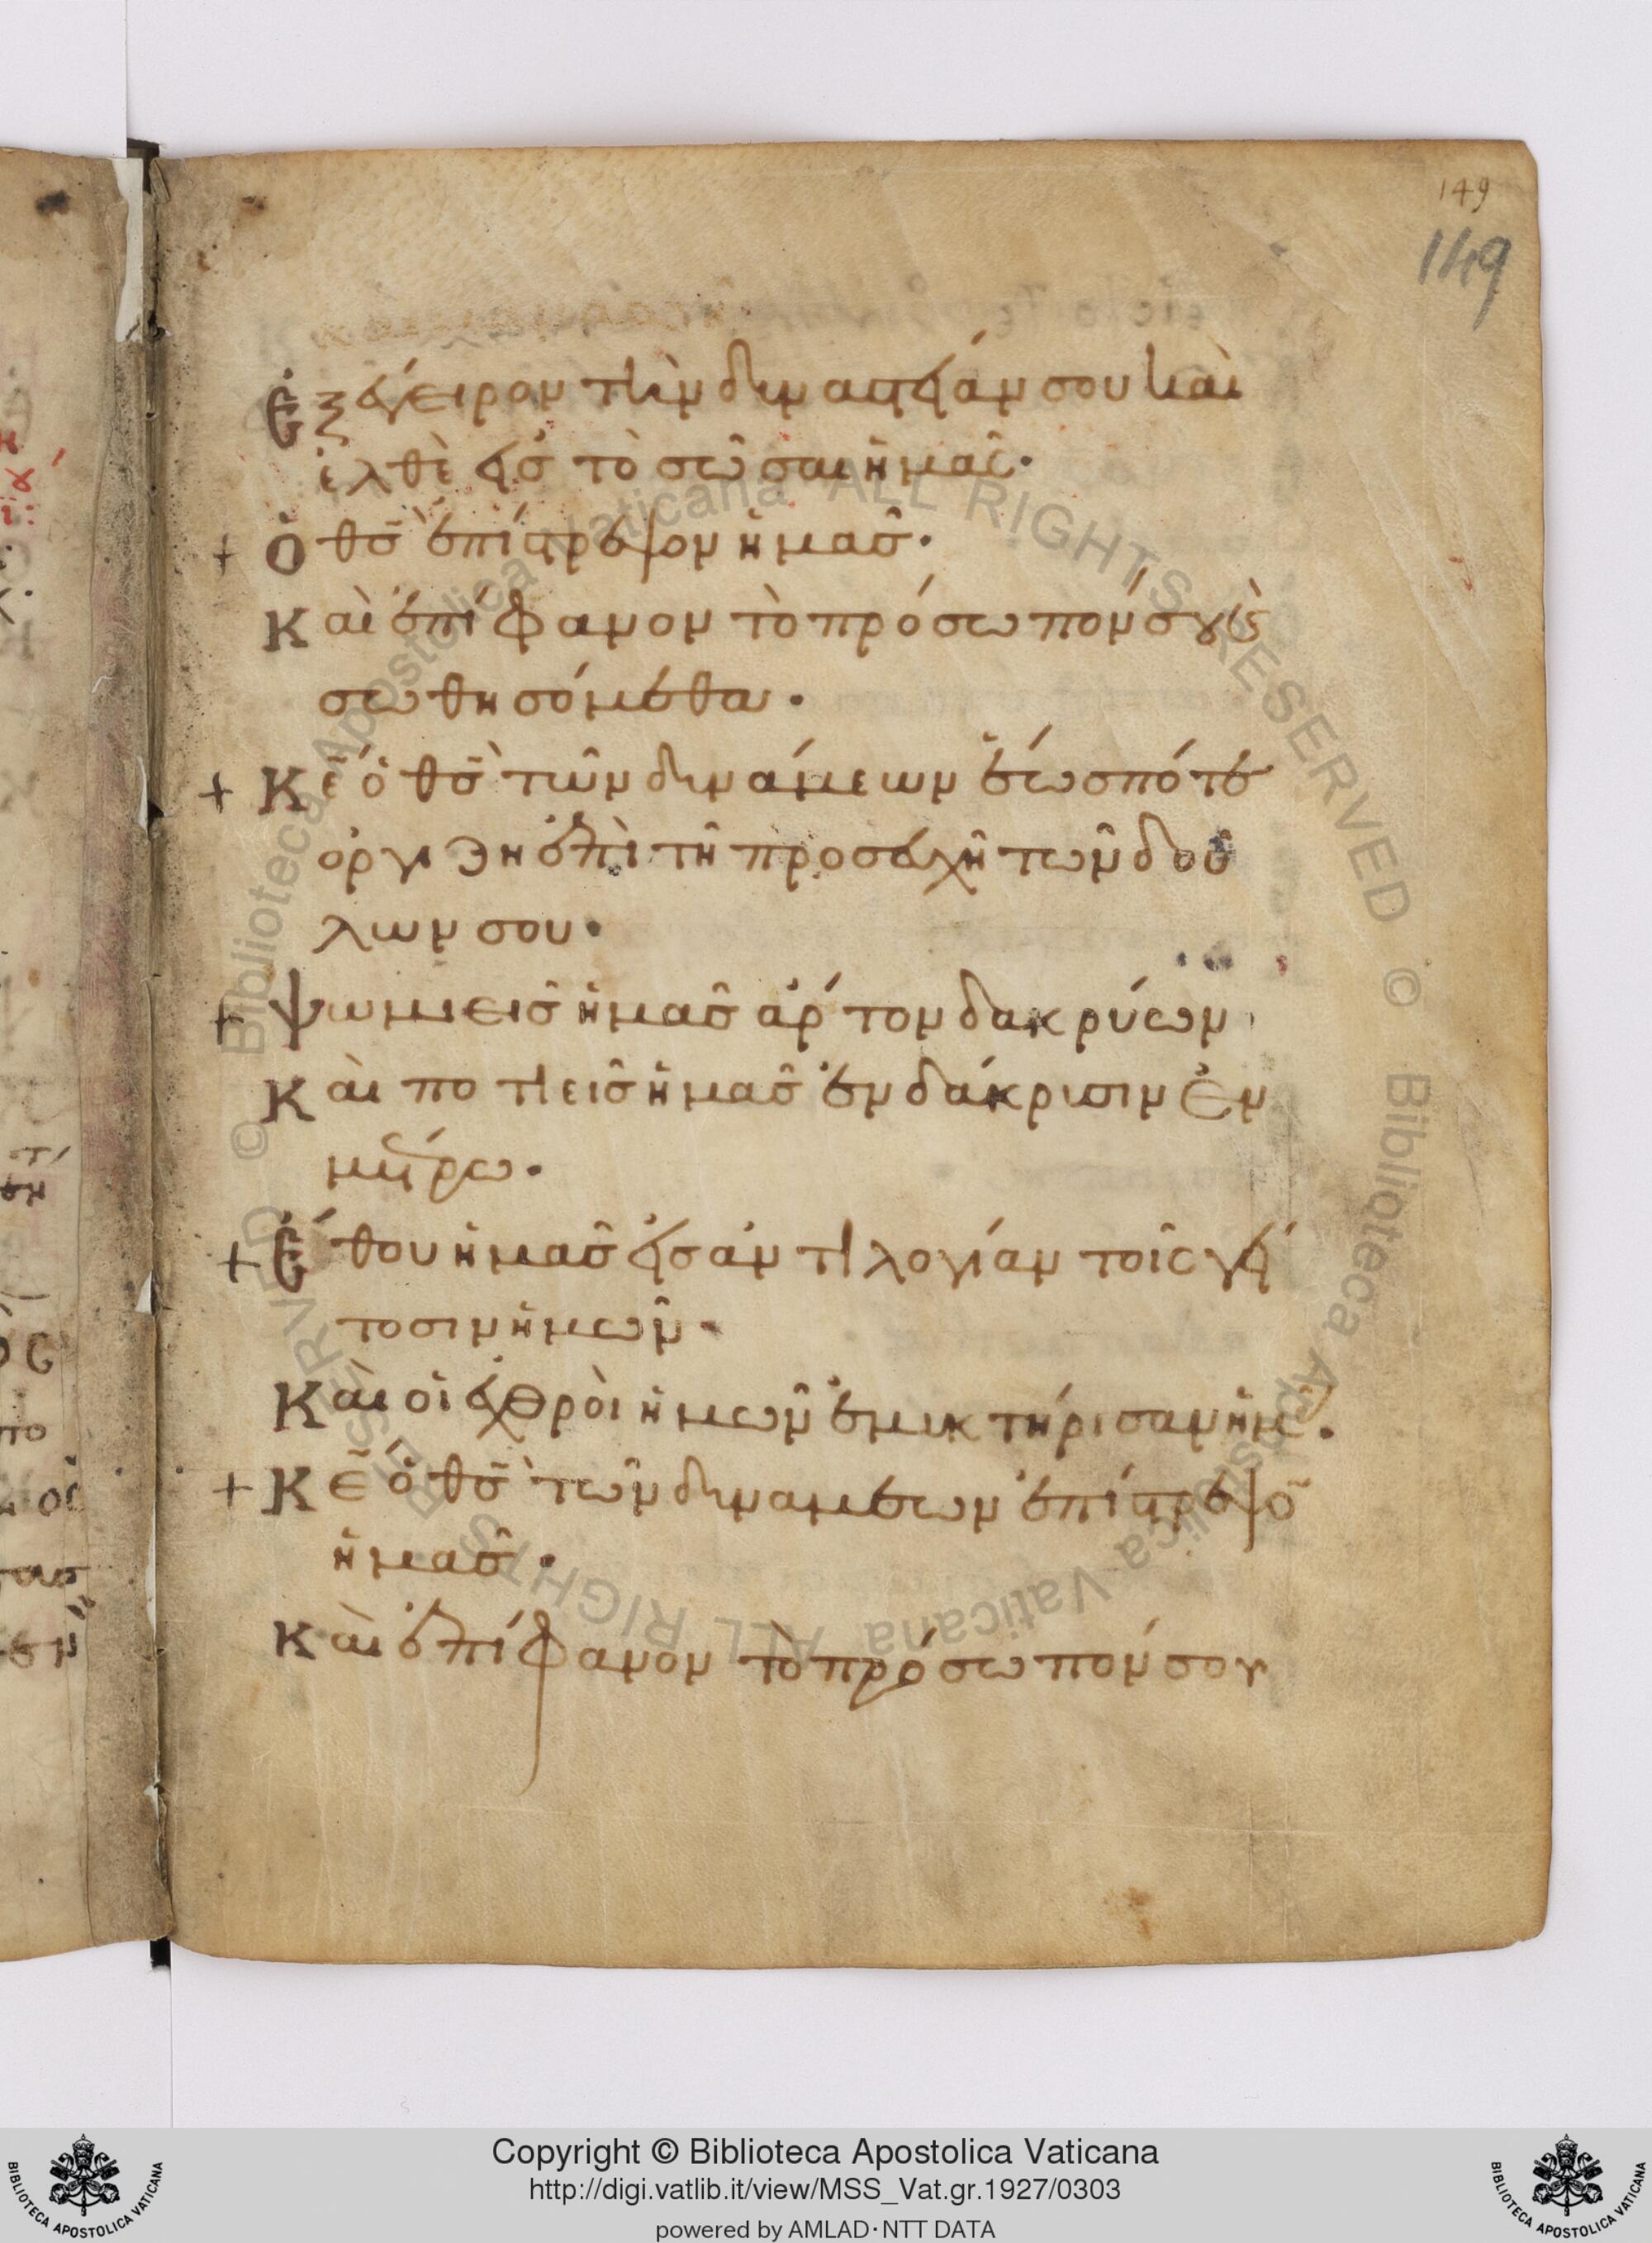 149
149
Ἐξέγειρον τὴν δυναστείαν σου καὶ
ἐλθὲ εἰς τὸ σῶσαι ἡμᾶς·
+ Ὁ θς̄ ἐπίστρεψον ἡμᾶς·
Καὶ ἐπίφανον τὸ πρόσωπόν σου ϗ
σωθησόμεθα·
+ Κε̄ ὁ θς̄ τῶν δυνάμεων ἕως πότε
ὀργίζῃ ἐπὶ τῇ προσευχῇ τῶν δού
λων σου·
+ Ψωμιεῖς ἡμᾶς ἄρτον δακρύων
Καὶ ποτιεῖς ἡμᾶς ἐν δάκρισιν ἐν
μέτρω·
+ Ἔθου ἡμᾶς εἰς ἀντιλογίαν τοῖς γεί
τοσιν ἡμῶν·
Καὶ οἱ ἐχθροὶ ἡμῶν ἐμυκτήρισαν ἡμᾶς·
+ Κε̄ ὁ θς̄ τῶν δυναμεων ἐπίστρεψο̄
ἡμᾶς·
Καὶ ἐπίφανον τὸ πρόσωπόν σου
Copyright © Biblioteca Apostolica Vaticana
http://digi.vatlib.it/view/MSS_Vat.gr.1927/0303
powered by AMLAD·NTT DATA
BIBLIOTECA APOSTOLICA VATICANA
BIBLIOTECA APOSTOLICA VATICANA